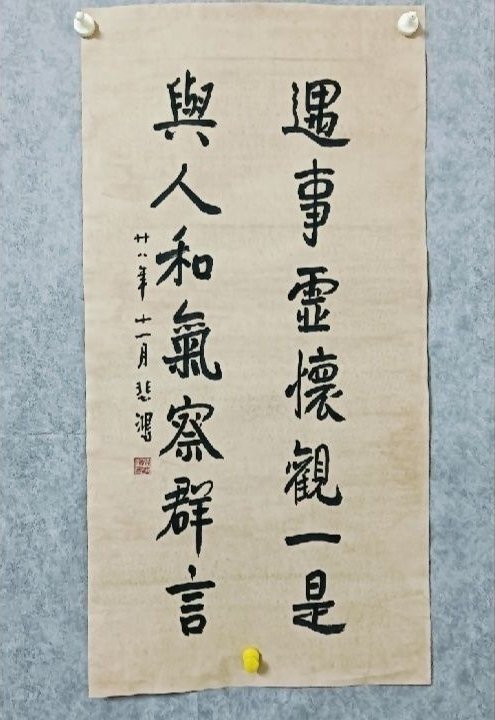 遇事靈懷觀一是
與人和氣察群言
廿八年十一月悲鴻